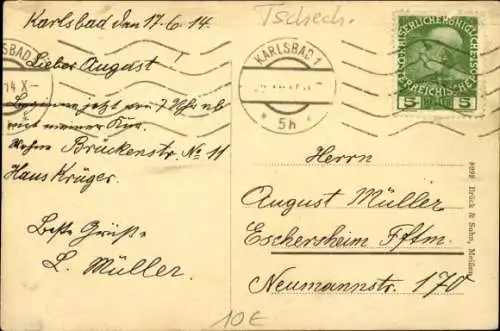 Karlsbad den 17.6.14.
Tschech.
Lieber August!
jetzt um 7 Uhr ab
mit meiner Kur.
Wohne Brückenstr. No 11
Haus Krüger.
Beste Grüße
L. Müller.
KARLSBAD 1
5h
SBAD
14 X-
KAISERLICHE KÖNIGLICHE
ÖSTERREICHISCHE POST
5 5
Herrn
August Müller
Eschersheim Fftm.
Neumannstr. 170
Brück & Sohn, Meißen.
10€